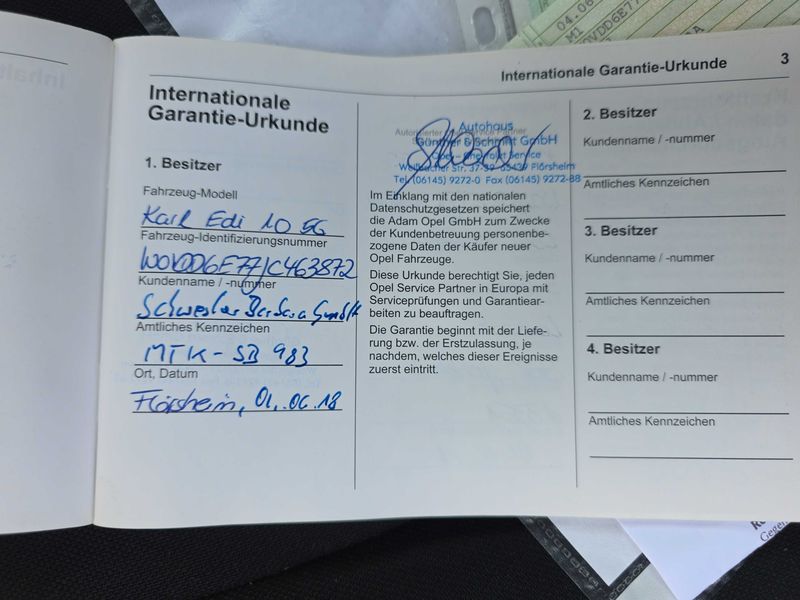 Internationale Garantie-Urkunde 3
Internationale
Garantie-Urkunde
1. Besitzer
Fahrzeug-Modell
Karl Edi 1.0 5G
Fahrzeug-Identifizierungsnummer
W0VDD6E77JC463872
Kundenname / -nummer
Schwester Barbara GmbH
Amtliches Kennzeichen
MTK - SB 983
Ort, Datum
Flörsheim, 01.06.18
Autohaus
Günther & Schmitt GmbH
Opel - Chevrolet Service
Str. 37-39 65439 Flörsheim
Tel. (06145) 9272-0 Fax (06145) 9272-88
Im Einklang mit den nationalen
Datenschutzgesetzen speichert
die Adam Opel GmbH zum Zwecke
der Kundenbetreuung personenbe-
zogene Daten der Käufer neuer
Opel Fahrzeuge.
Diese Urkunde berechtigt Sie, jeden
Opel Service Partner in Europa mit
Serviceprüfungen und Garantiear-
beiten zu beauftragen.
Die Garantie beginnt mit der Liefe-
rung bzw. der Erstzulassung, je
nachdem, welches dieser Ereignisse
zuerst eintritt.
2. Besitzer
Kundenname / -nummer
Amtliches Kennzeichen
3. Besitzer
Kundenname / -nummer
Amtliches Kennzeichen
4. Besitzer
Kundenname / -nummer
Amtliches Kennzeichen
04.06
M1